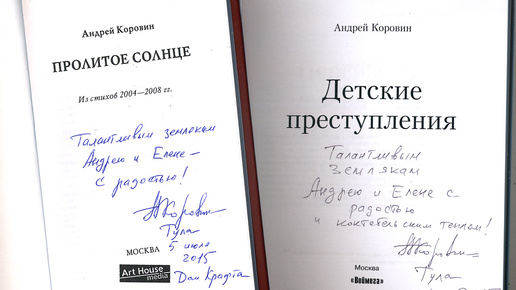 Андрей Коровин
ПРОЛИТОЕ СОЛНЦЕ
Из стихов 2004—2008 гг.
Талантливым землякам
Андрею и Елене –
с радостью!
АКоровин
Тула
5 июля
2015
Дом Крафта
МОСКВА
Art House
media
Андрей Коровин
Детские
преступления
Талантливым
землякам
Андрею и Елене с
радостью
и коктебельским теплом!
АКоровин
Тула
Москва
«Воймега»